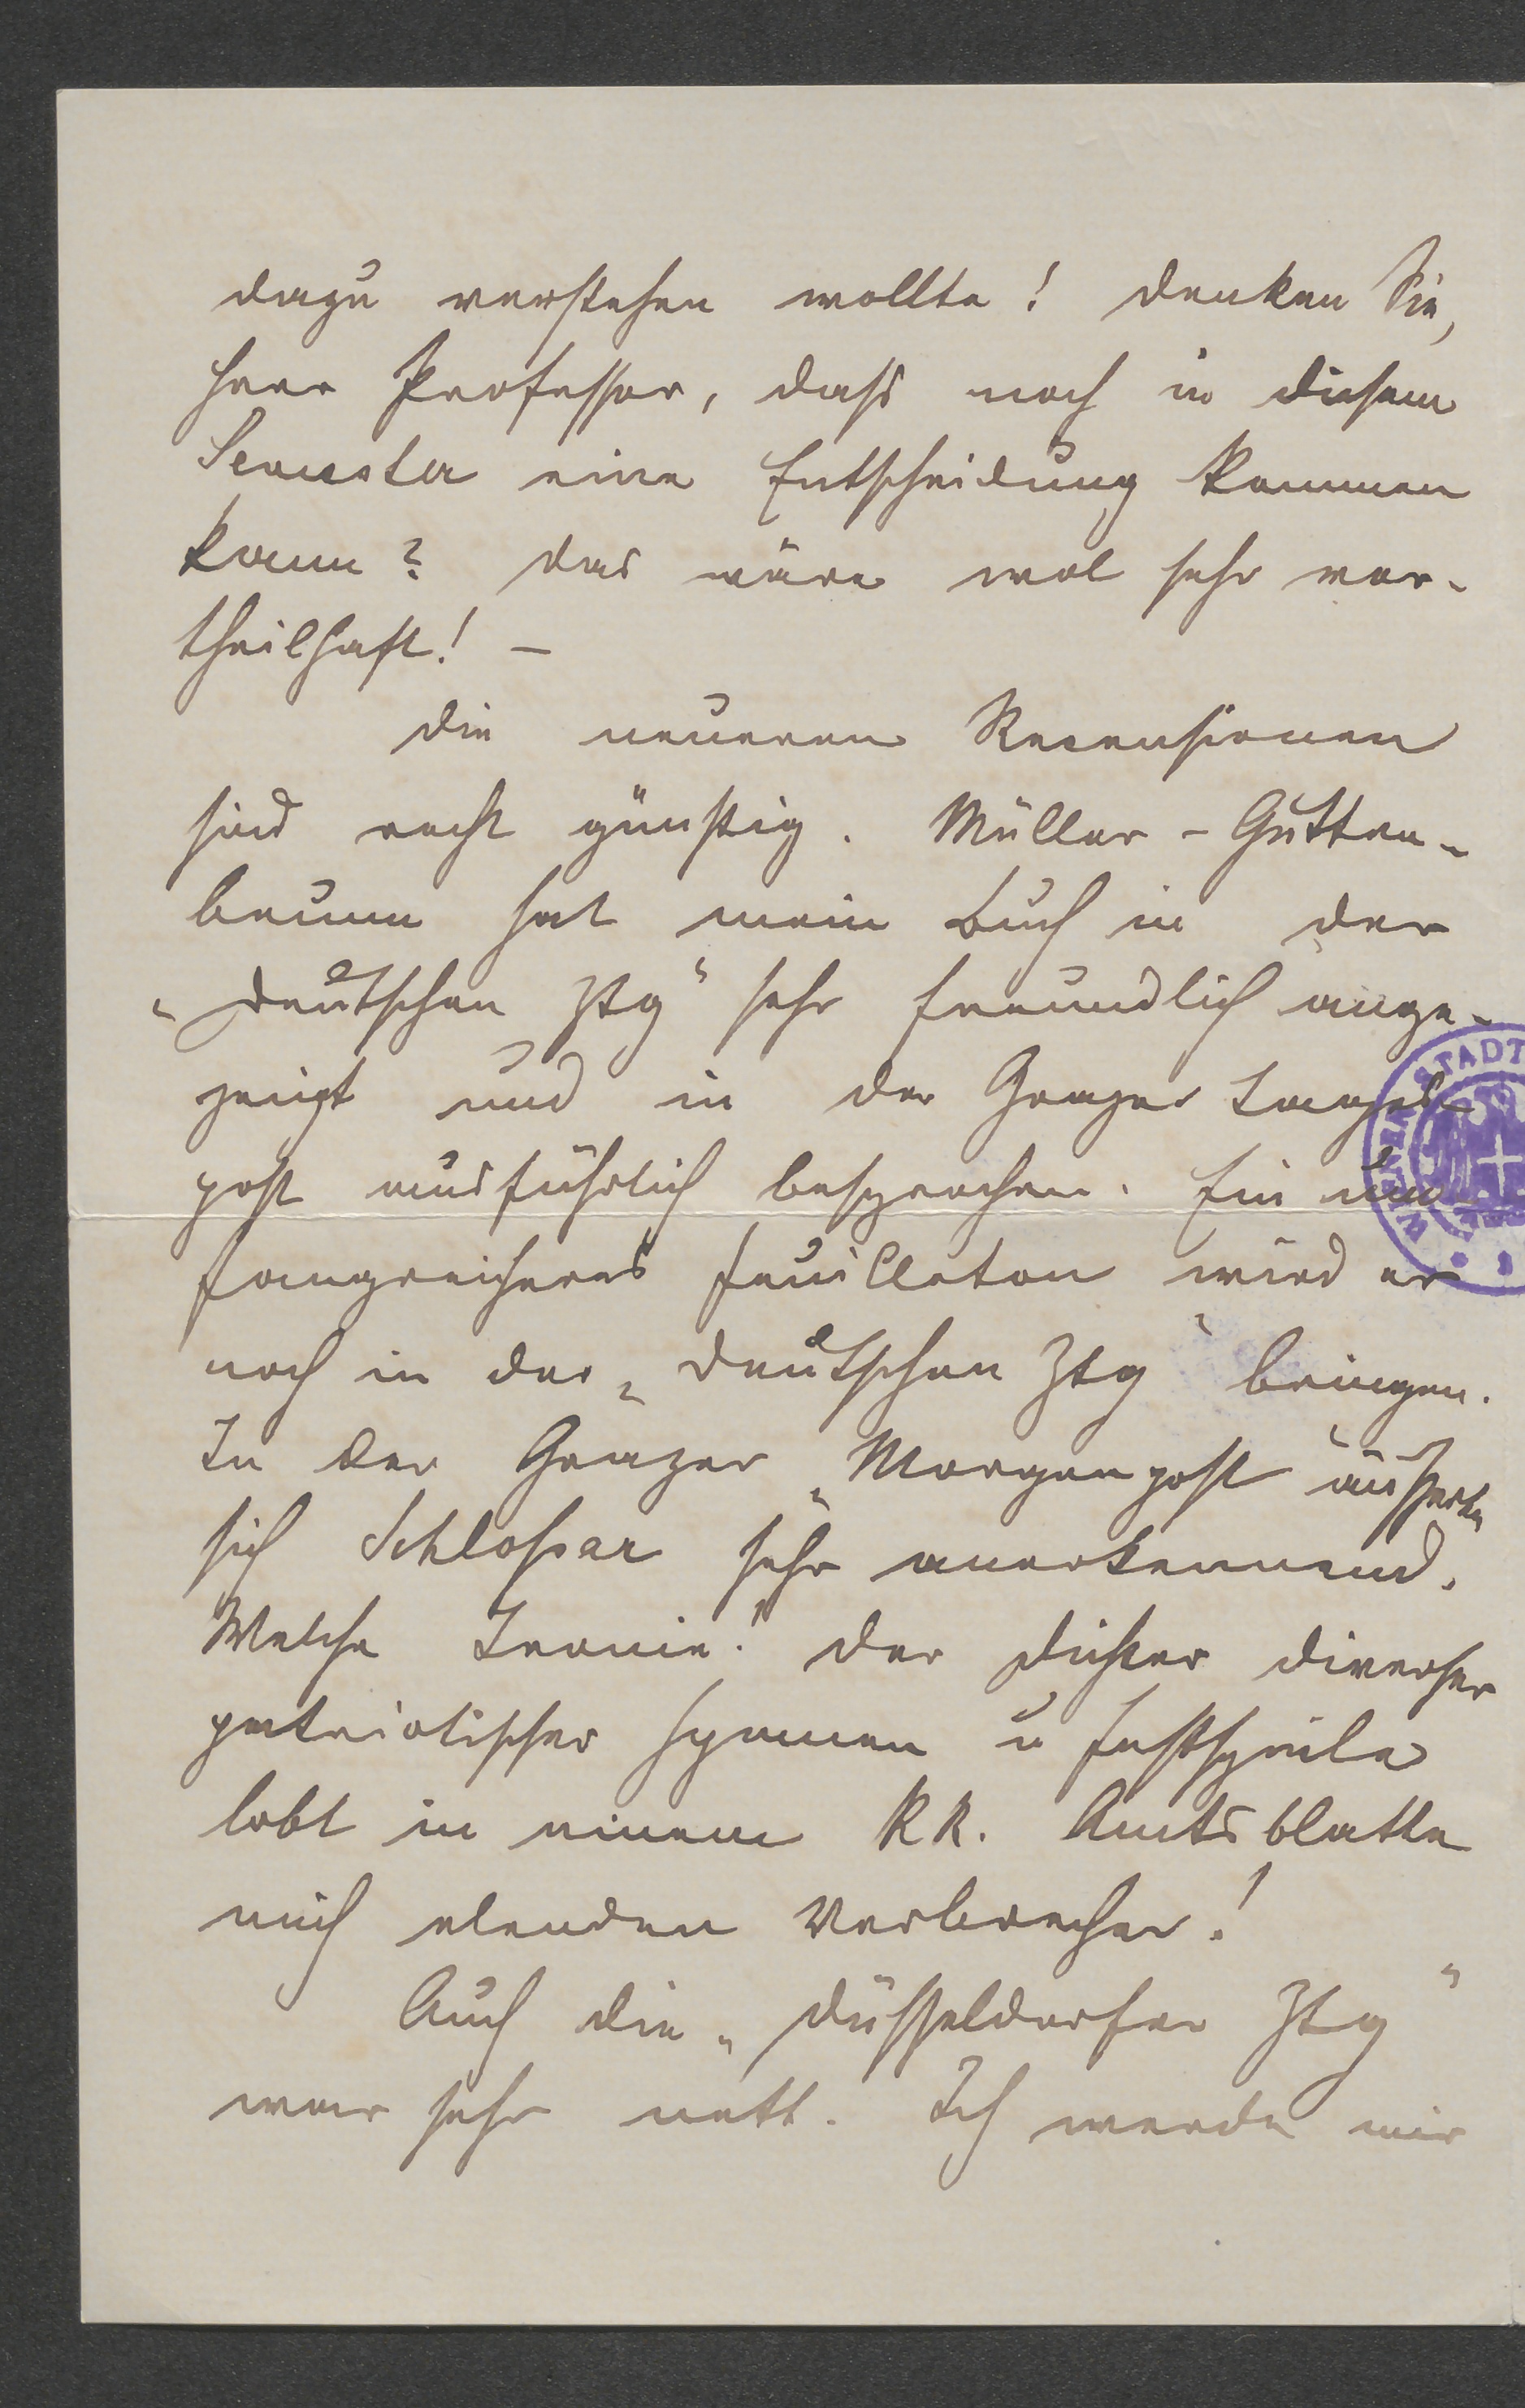 dazu verstehen wollte! Denken Sie,
Herr Professor, dass noch in diesem
Semester eine Entscheidung kommen
kann? Das wäre wol sehr vor-
theilhaft! –
Die neueren Recensionen
sind recht günstig. Müller-Gutten-
brunn hat mein Buch in der
„Deutschen Ztg“ sehr freundlich ange-
zeigt und in der Grazer Tages
post ausführlich besprochen. Ein um
fangreicheres Feuilleton wird er
noch in der „Deutschen Ztg“ bringen.
In der Grazer „Morgenpost äusserte
sich Schlossar sehr anerkennend.
Welche Ironie! Der Dichter diverser
patriotischer Hymnen u Festspiele
lobt in einem KK. Amtsblatte
mich elenden Verbrecher!
Auch die „Düsseldorfer Ztg“
war sehr nett. Ich werde mir
WIENER STADT